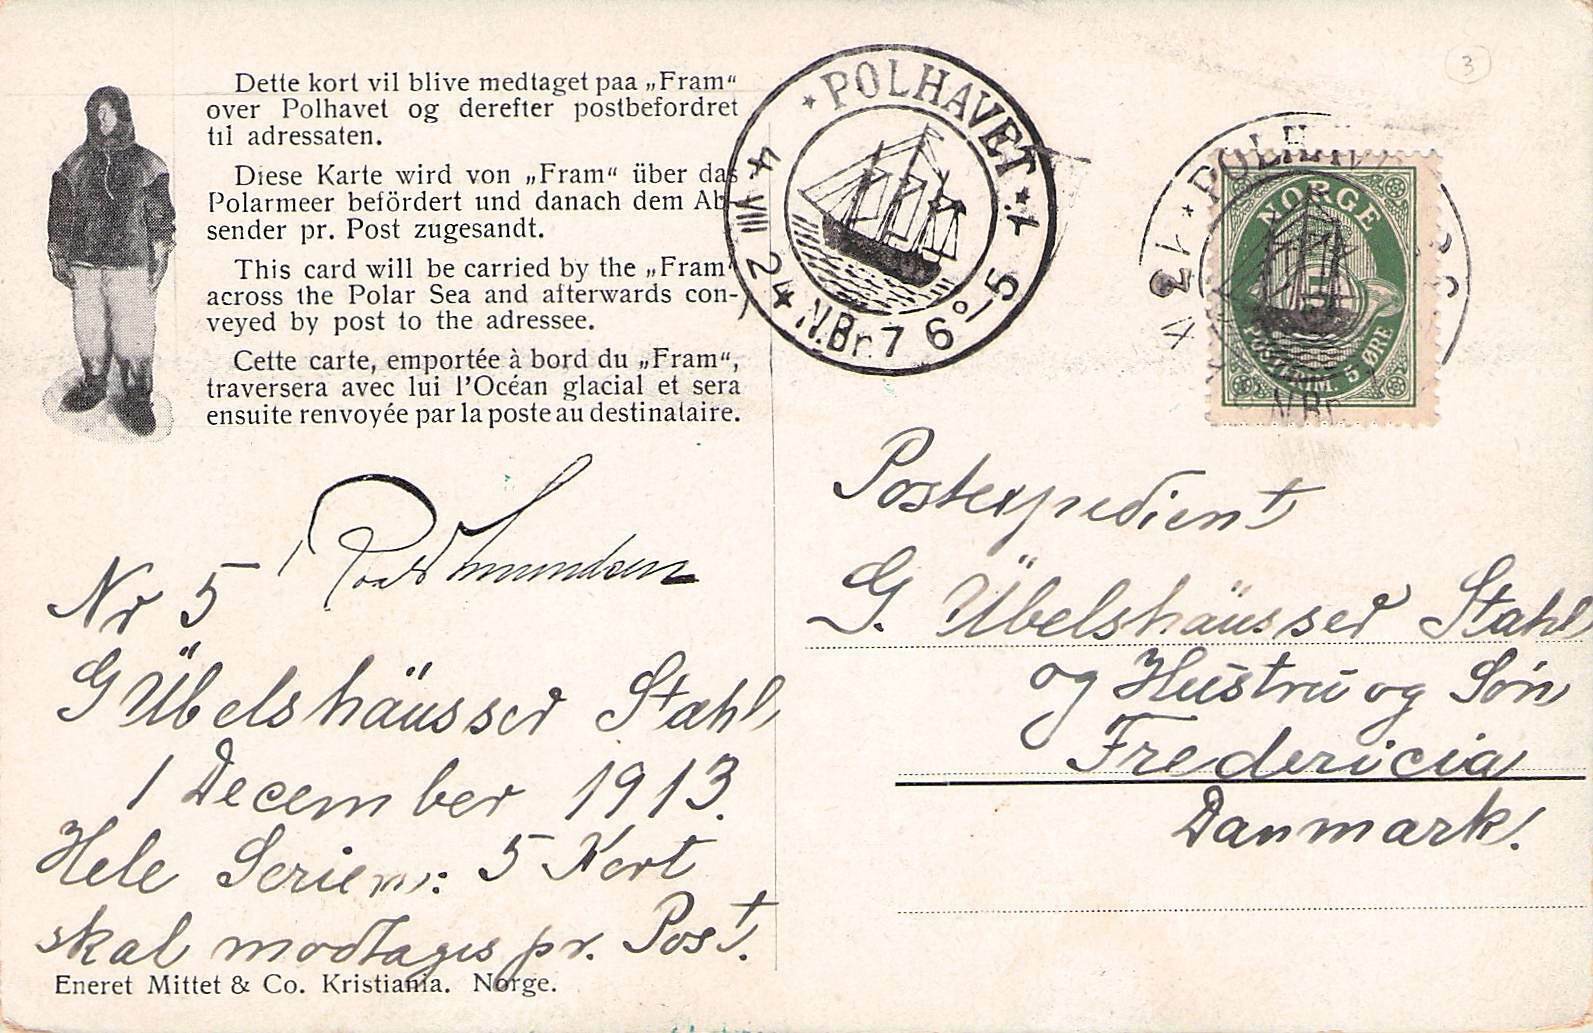 Dette kort vil blive medtaget paa „Fram“
over Polhavet og derefter postbefordret
til adressaten.
Diese Karte wird von „Fram“ über das
Polarmeer befördert und danach dem Ab-
sender pr. Post zugesandt.
This card will be carried by the „Fram“
across the Polar Sea and afterwards con-
veyed by post to the adressee.
Cette carte, emportée à bord du „Fram“,
traversera avec lui l'Océan glacial et sera
ensuite renvoyée par la poste au destinataire.
POLHAVET
4 VIII 24
N.Br. 76°-5
POLHAV
N.Br
NORGE
POSTFRIM. 5 ØRE
3
Roald Amundsen
Nr 5
G Übelshäusser Stahl
1 December 1913.
Hele Serien: 5 Kort
skal modtages pr. Post.
Eneret Mittet & Co. Kristiania. Norge.
Postexpedient
G. Übelshäusser Stahl
og Hustru og Søn
Fredericia
Danmark.